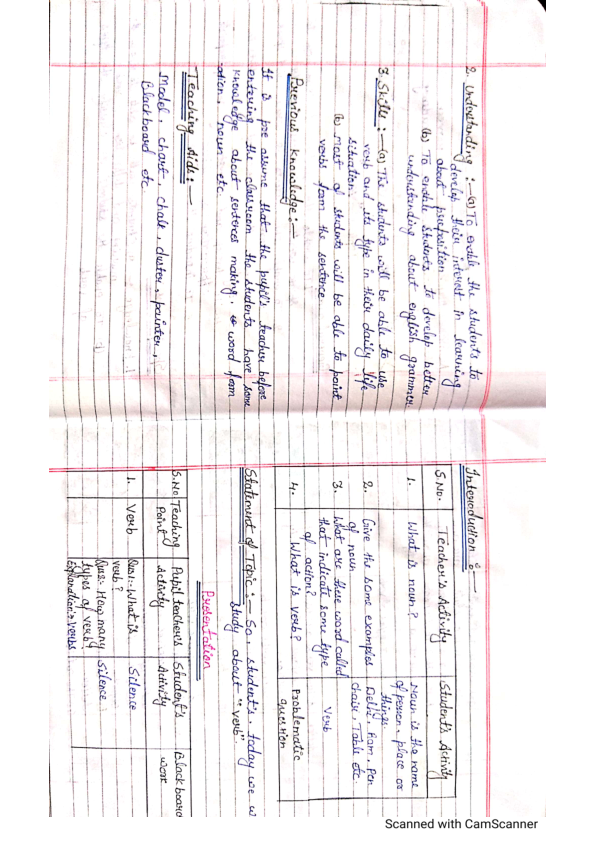 2. Understanding :- (a) To enable the students to
develop their interest in learning
about preposition
(b) To enable students to develop better
understanding about english grammer.
3. Skills :- (a) The students will be able to use
verb and its type in their daily life
situation.
(b) Most of students will be able to point
verbs from the sentence
Previous Knowledge :-
It is pre assume that the pupil's teacher before
entering the classroom the students have some
knowledge about sentences making. word form
ation, noun etc.
Teaching Aids :-
Model, chart, chalk, duster, pointer,
Blackboard etc.
Introduction :-
S.No. Teacher's Activity Student's Activity
1. What is noun? Noun is the name
of person, place or
things.
2. Give the some examples Delhi, Ram, Pen
of noun chair, Table etc.
3. What are those word called Verb
that indicate some type
of action?
4. What is verb? Problematic
question
Statement of Topic :- So, student's, today we w
study about "verb".
Presentation
S.No Teaching Pupil teacher's Student's Blackboard
Point Activity Activity work
1. Verb Ques1:- What is Silence
verb?
Ques2:- How many Silence
types of verb?
Explanation:- Verbs
Scanned with CamScanner